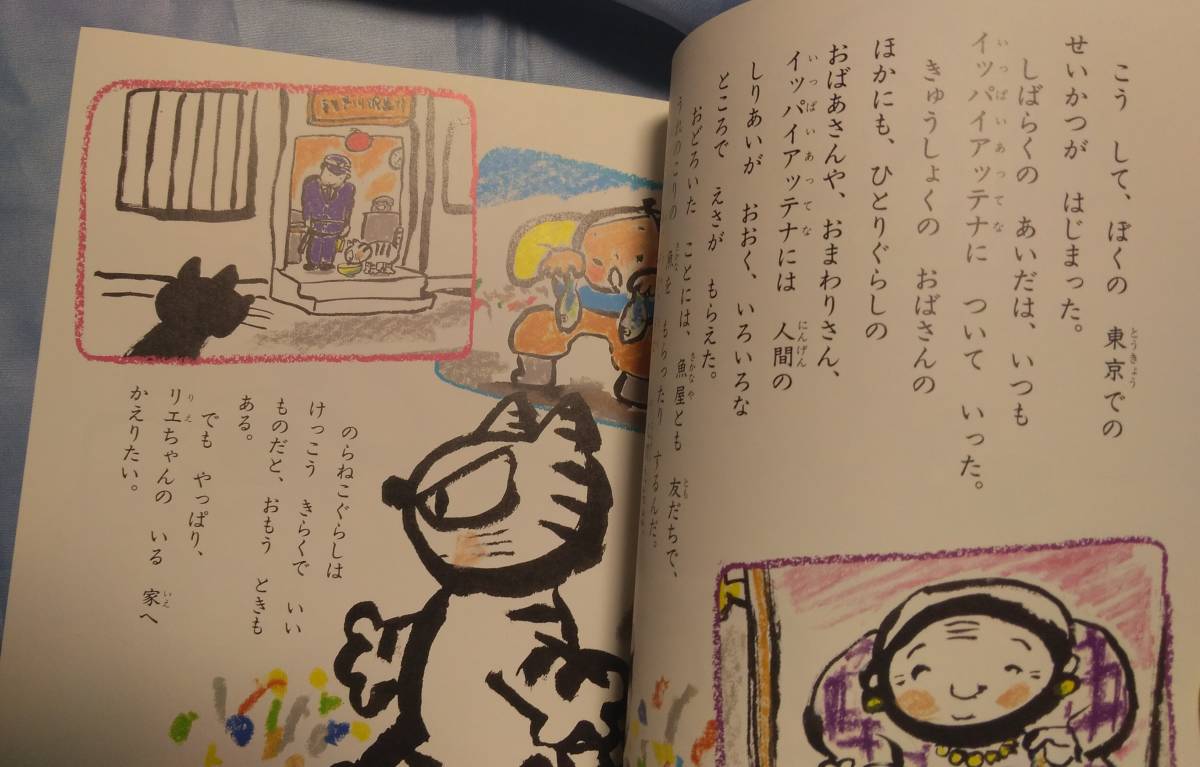 とうきょう
こう して、ぼくの 東京での
せいかつが はじまった。
しばらくの あいだは、いつも
いっぱいあってな
イッパイアッテナに ついて いった。
きゅうしょくの おばさんの
ほかにも、ひとりぐらしの
おばあさんや、おまわりさん、
いっぱいあってな にんげん
イッパイアッテナには 人間の
しりあいが おおく、いろいろな
ところで えさが もらえた。
さかなや とも
おどろいた ことには、魚屋とも 友だちで、
さかな
うれのこりの 魚を もらったり するんだ。
のらねこぐらしは
けっこう きらくで いい
ものだと、おもう ときも
ある。
でも やっぱり、
りえ いえ
リエちゃんの いる 家へ
かえりたい。